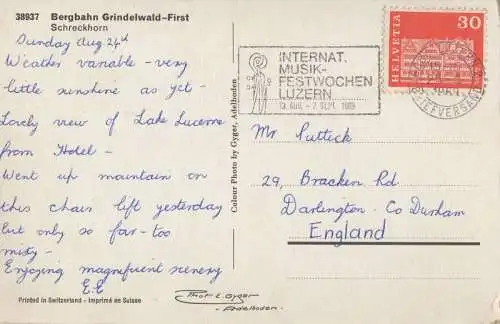 38937 Bergbahn Grindelwald-First
Schreckhorn
Sunday Aug 24th
Weather variable - very
little sunshine as yet -
Lovely view of Lake Lucerne
from Hotel -
Went up mountain on
this chair lift yesterday
but only so far - too
misty -
Enjoying magnificent scenery
E.E
Printed in Switzerland - Imprimé en Suisse
Colour Photo by Gyger, Adelboden
Phot E. Gyger
- Adelboden -
INTERNAT.
MUSIK-
FESTWOCHEN
LUZERN
HELVETIA
30
BRIEFVERSAND
Mr Puttick
29, Bracken Rd
Darlington. Co Durham
England